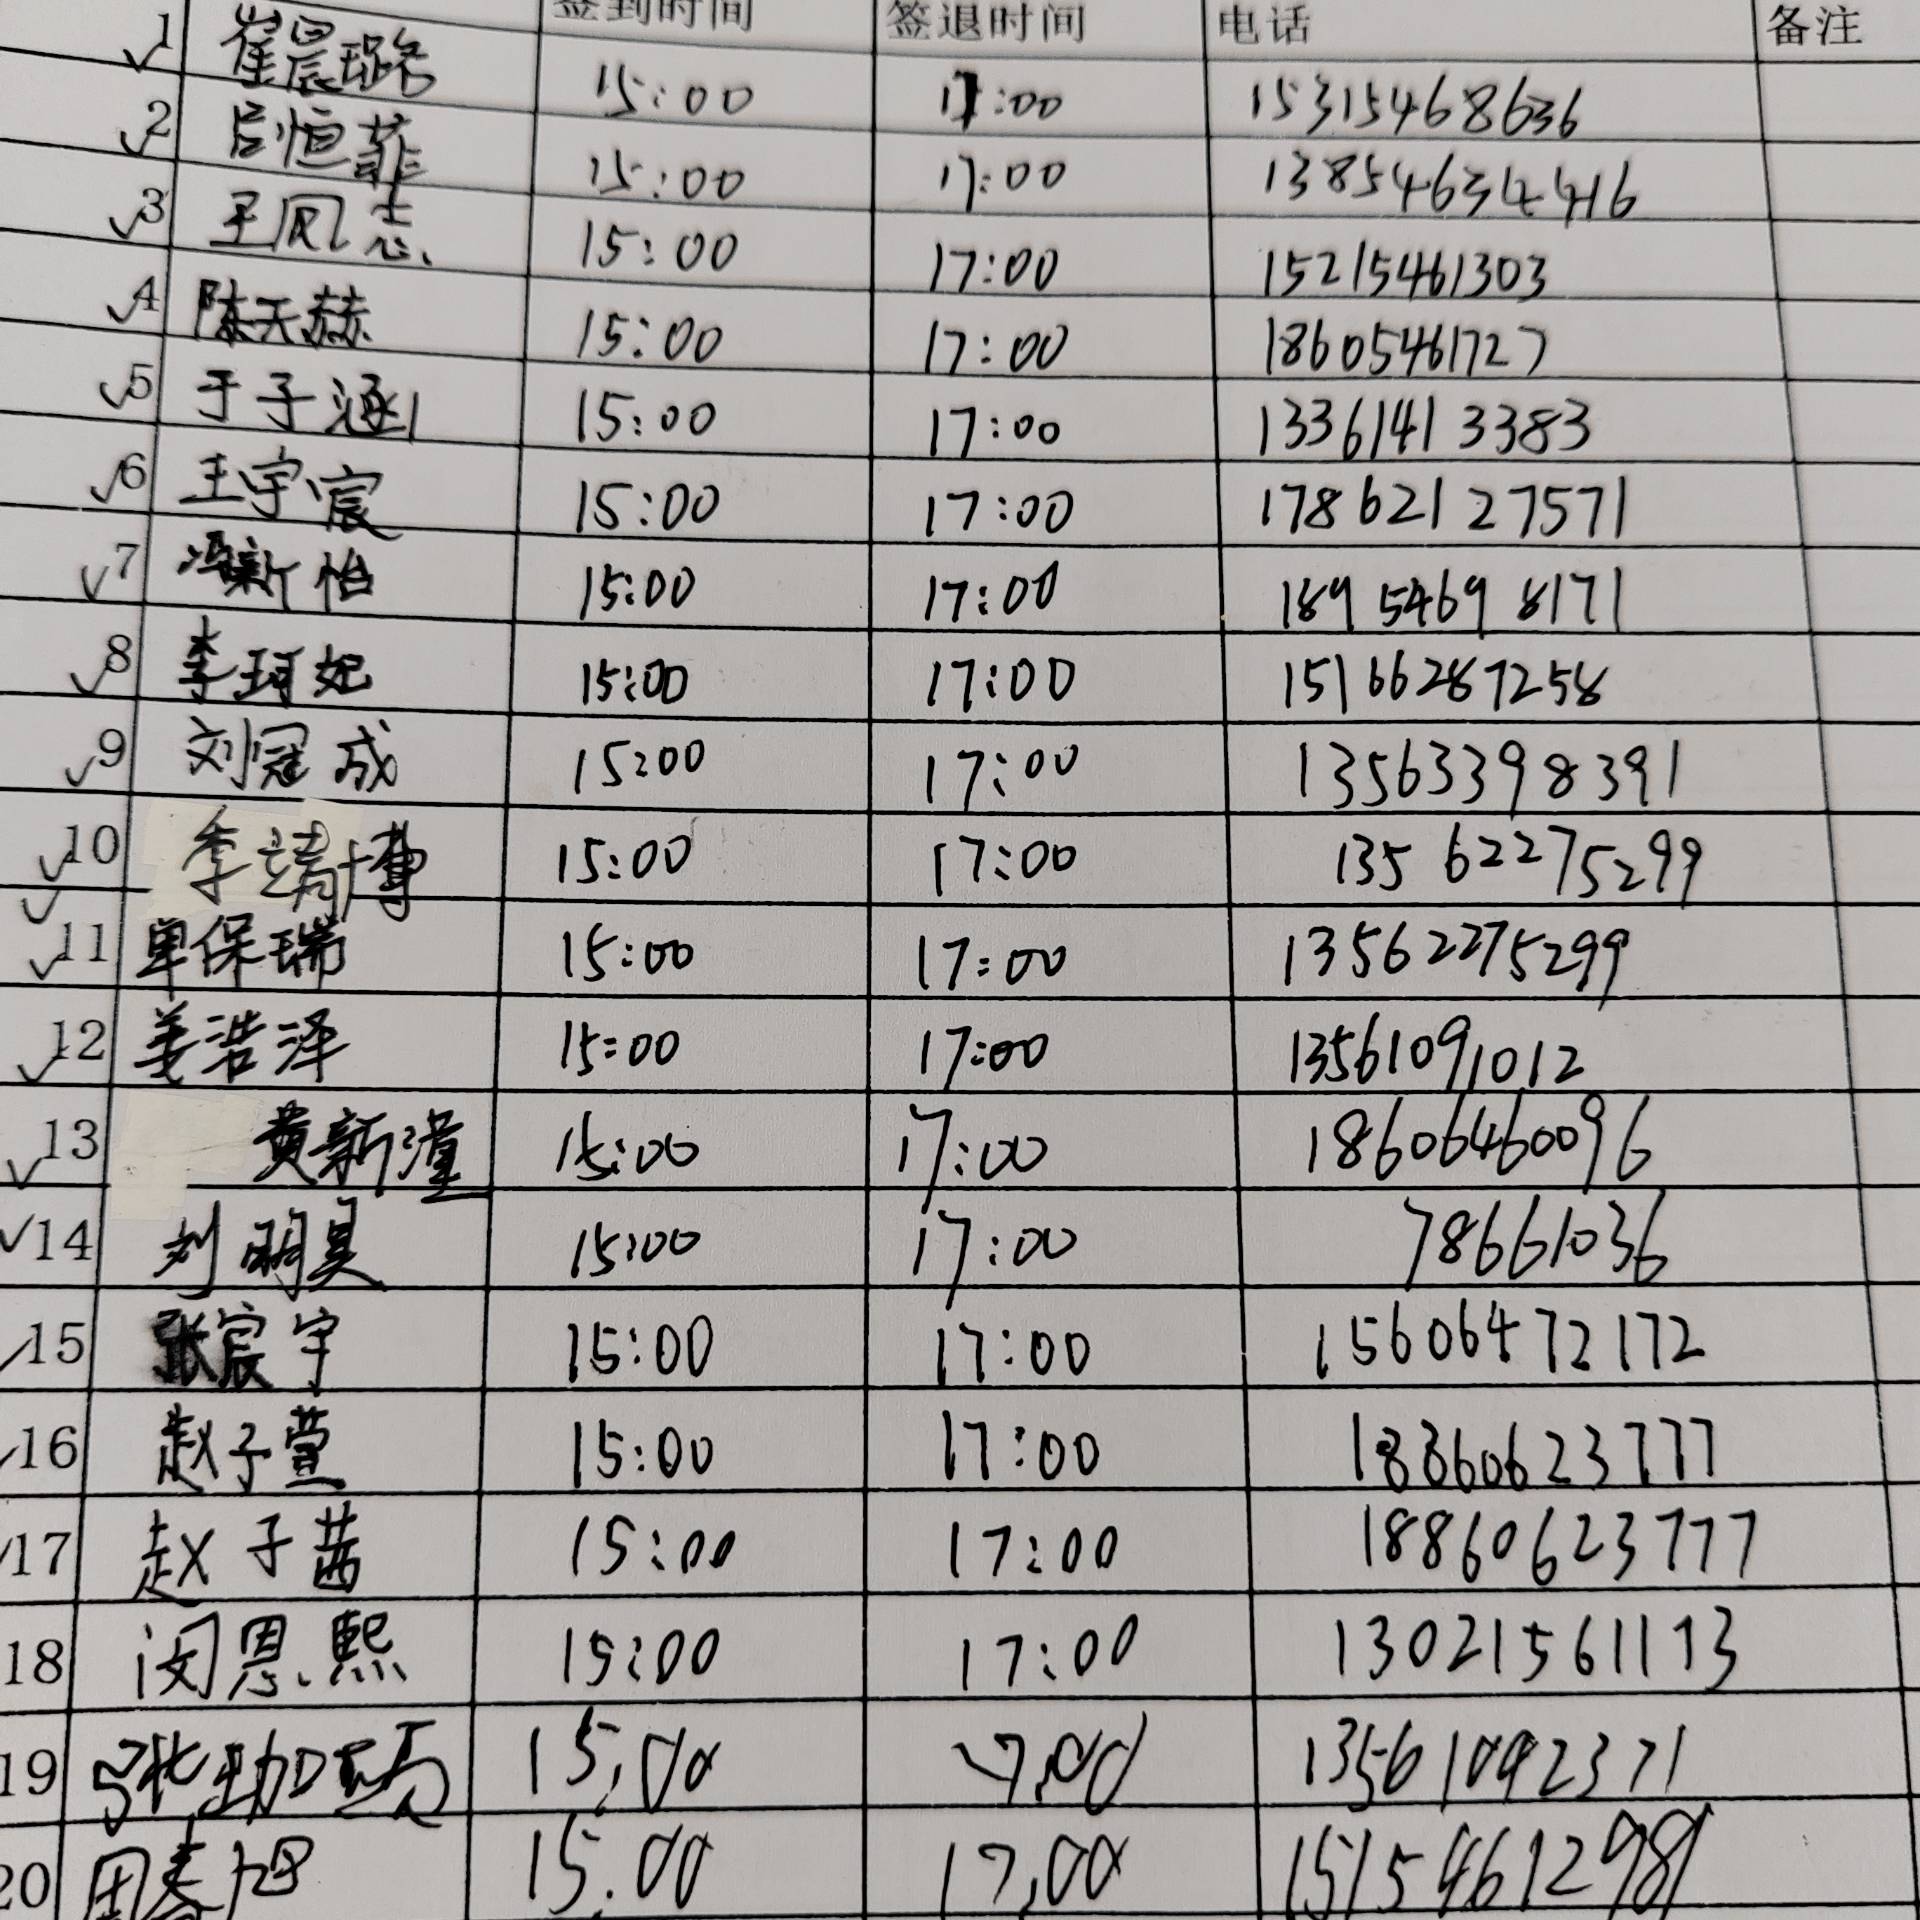 签到时间 签退时间 电话 备注
1 崔晨璐 15:00 17:00 15315468636
2 吕恒菲 15:00 17:00 13854634416
3 王凤志 15:00 17:00 15215461303
4 陈天赫 15:00 17:00 18605461727
5 于子涵 15:00 17:00 13361413383
6 王宇宸 15:00 17:00 17862127571
7 冯新怡 15:00 17:00 18954698171
8 李珂妃 15:00 17:00 15166287258
9 刘冠成 15:00 17:00 13563398391
10 季靖博 15:00 17:00 13562275299
11 单保瑞 15:00 17:00 13562275299
12 姜浩泽 15:00 17:00 13561091012
13 黄新潼 15:00 17:00 18606460096
14 刘明昊 15:00 17:00 78661036
15 张宸宇 15:00 17:00 15606472172
16 赵子萱 15:00 17:00 18860623777
17 赵子茜 15:00 17:00 18860623777
18 闵恩熙 15:00 17:00 13021561113
19 张 15:00 17:00 13561092371
20 周春旭 15:00 17:00 15154612981